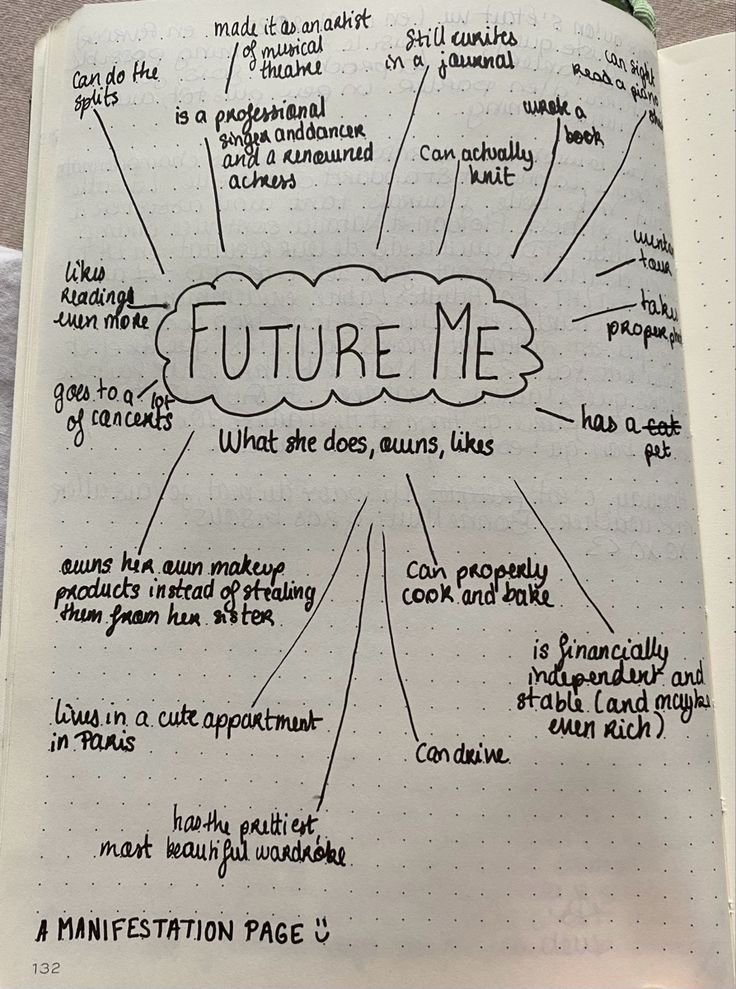 made it as an artist
of musical
theatre
Still writes
in a journal
can sight
Read a piano
Can do the
splits
is a professional
singer and dancer
and a renowned
actress
wrote a
book
Can actually
knit
likes
Readings
even more
tour
proper
FUTURE ME
goes to a lot
of concerts
has a cat
pet
What she does, owns, likes
owns her own makeup
products instead of stealing
them from her sister
Can properly
cook and bake
is financially
independent and
stable (and maybe
even rich)
lives in a cute appartment
in Paris
Can drive
has the prettiest,
most beautiful wardrobe
A MANIFESTATION PAGE
132